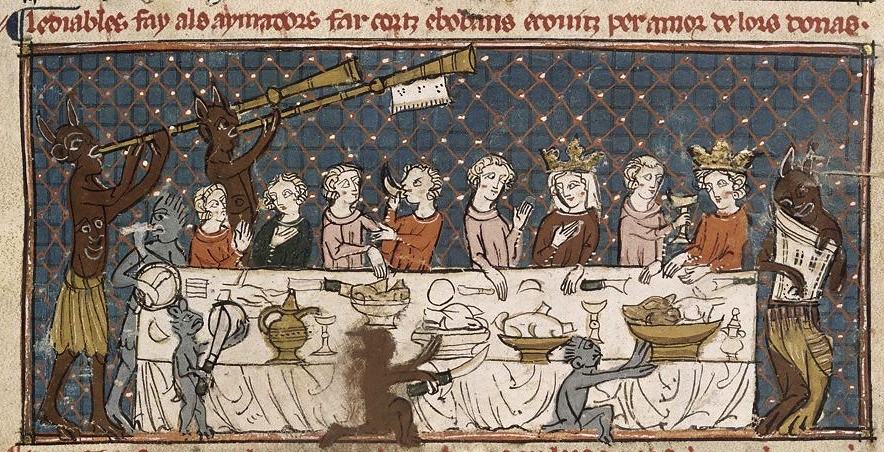 Lediables fay als aymadors far cortz ebobans ecouitz per amor de lors donas.